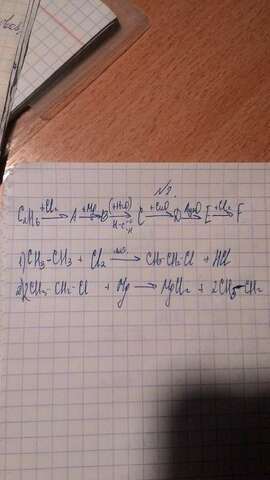 №2.
C₂H₆ +Cl₂→ A +Mg→ B (+H₂O) H-C=O -H→ C +CuO→ D Ag₂O→ E +Cl₂→ F
1) CH₃-CH₃ + Cl₂ → CH₃-CH₂-Cl + HCl
2) 2CH₃-CH₂-Cl + Mg → MgCl₂ + 2CH₃-CH₂